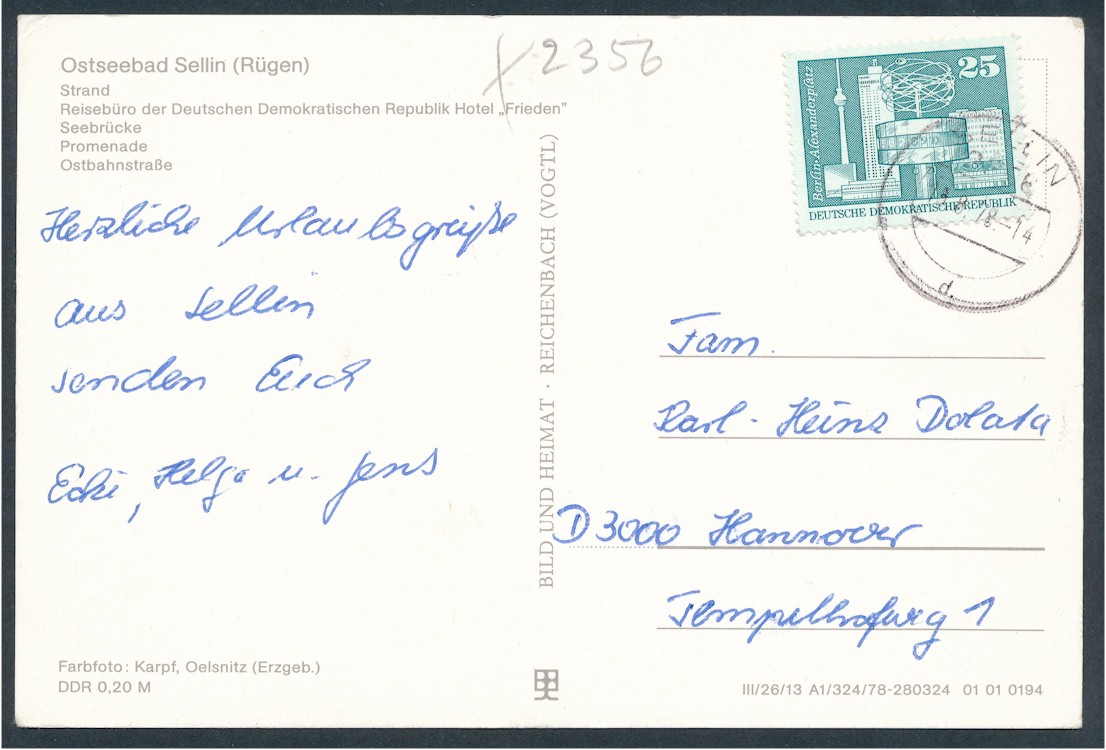 Ostseebad Sellin (Rügen)
Strand
Reisebüro der Deutschen Demokratischen Republik Hotel „Frieden"
Seebrücke
Promenade
Ostbahnstraße
2356
Herzliche Urlaubsgrüße
aus Sellin
senden Euch
Ecki, Helga u. Jens
Farbfoto: Karpf, Oelsnitz (Erzgeb.)
DDR 0,20 M
BILD UND HEIMAT · REICHENBACH (VOGTL)
25
Berlin-Alexanderplatz
DEUTSCHE DEMOKRATISCHE REPUBLIK
78.-14
d
Fam.
Karl-Heinz Dolata
D 3000 Hannover
Tempelhofweg 1
III/26/13 A1/324/78-280324 01 01 0194